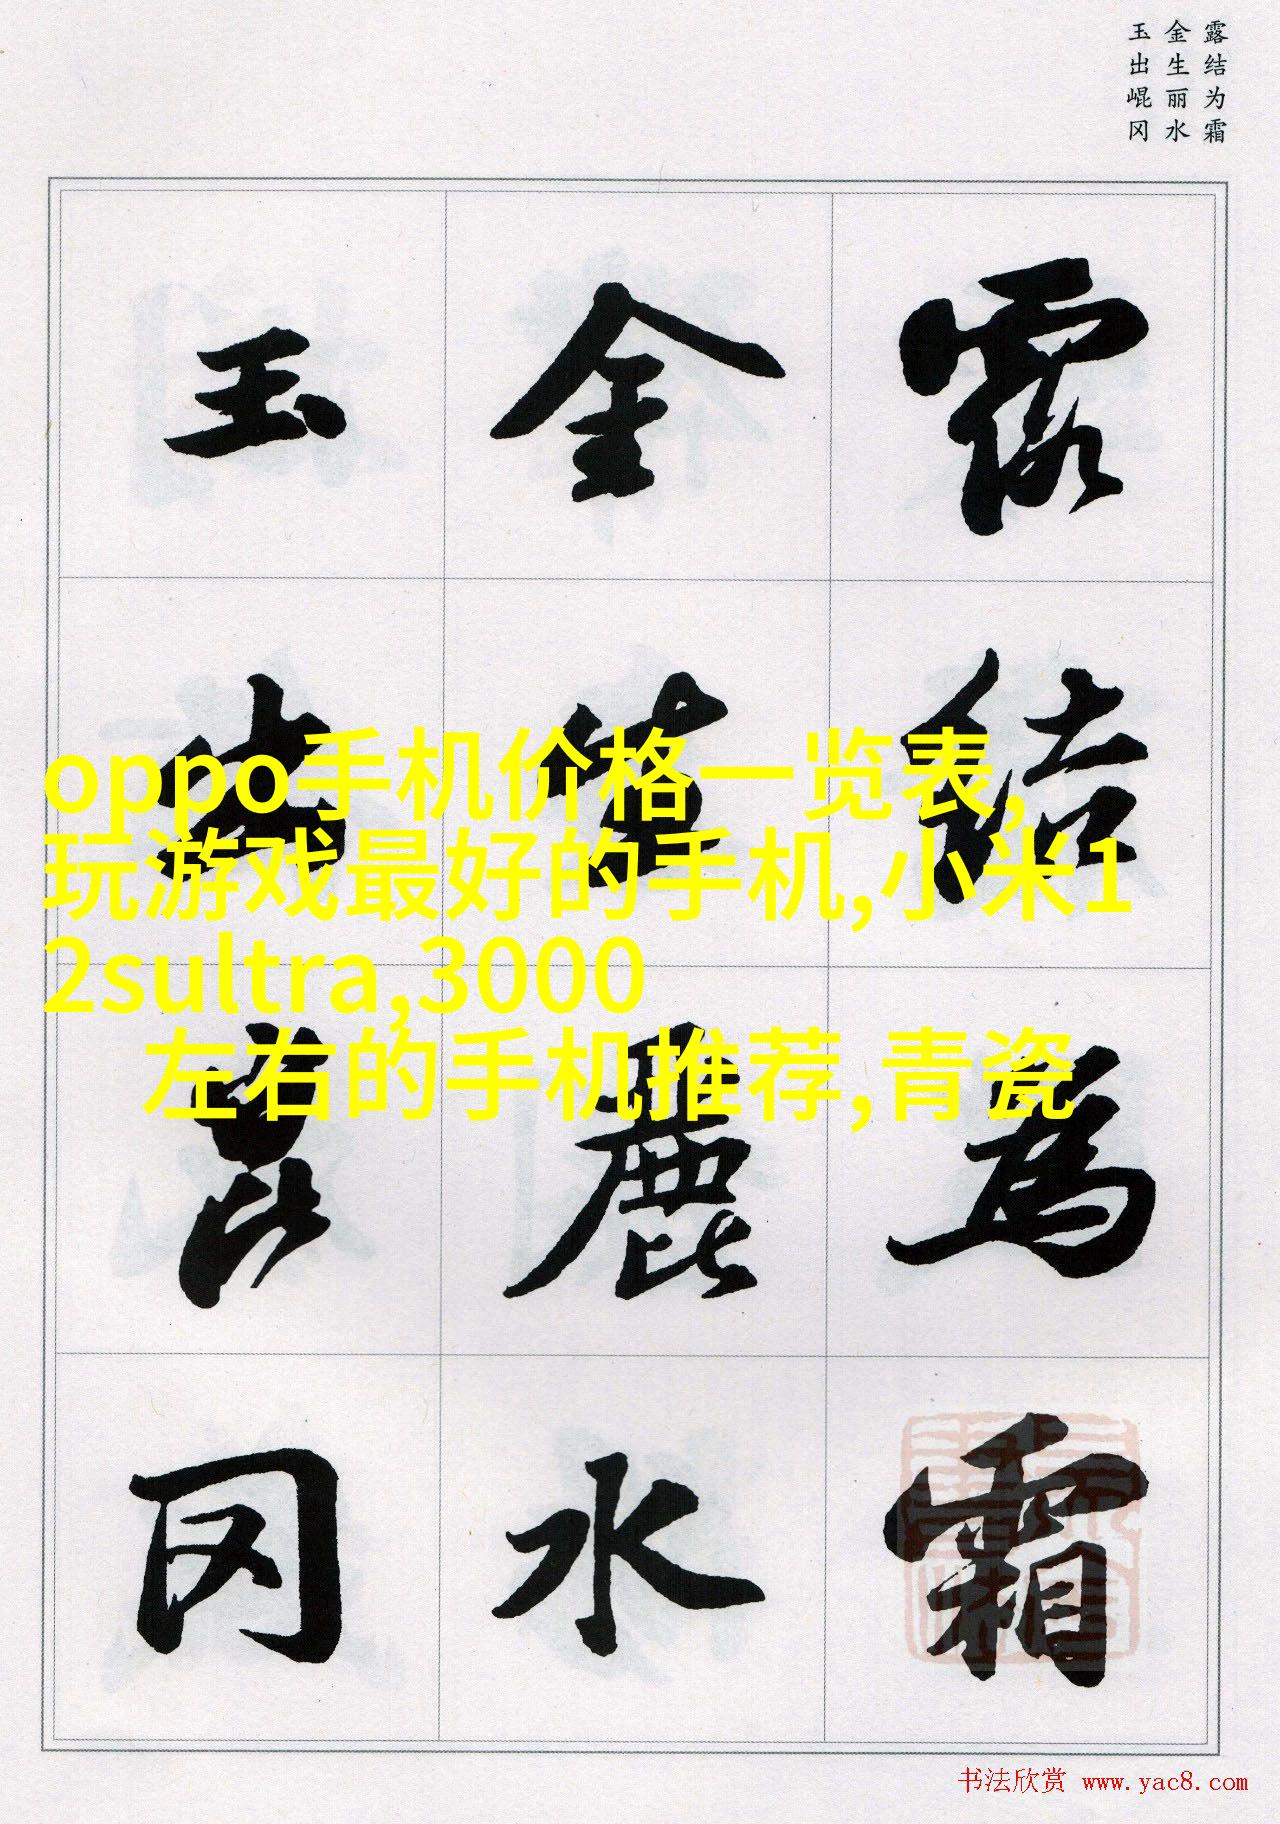 露结为霜
金生丽水
玉出崐冈
露結為霜
金生麗水
玉出崑冈
oppo手机价格一览表,
玩游戏最好的手机,小米1
2sultra,3000
左右的手机推荐,青瓷
书法欣赏 www.yac8.com